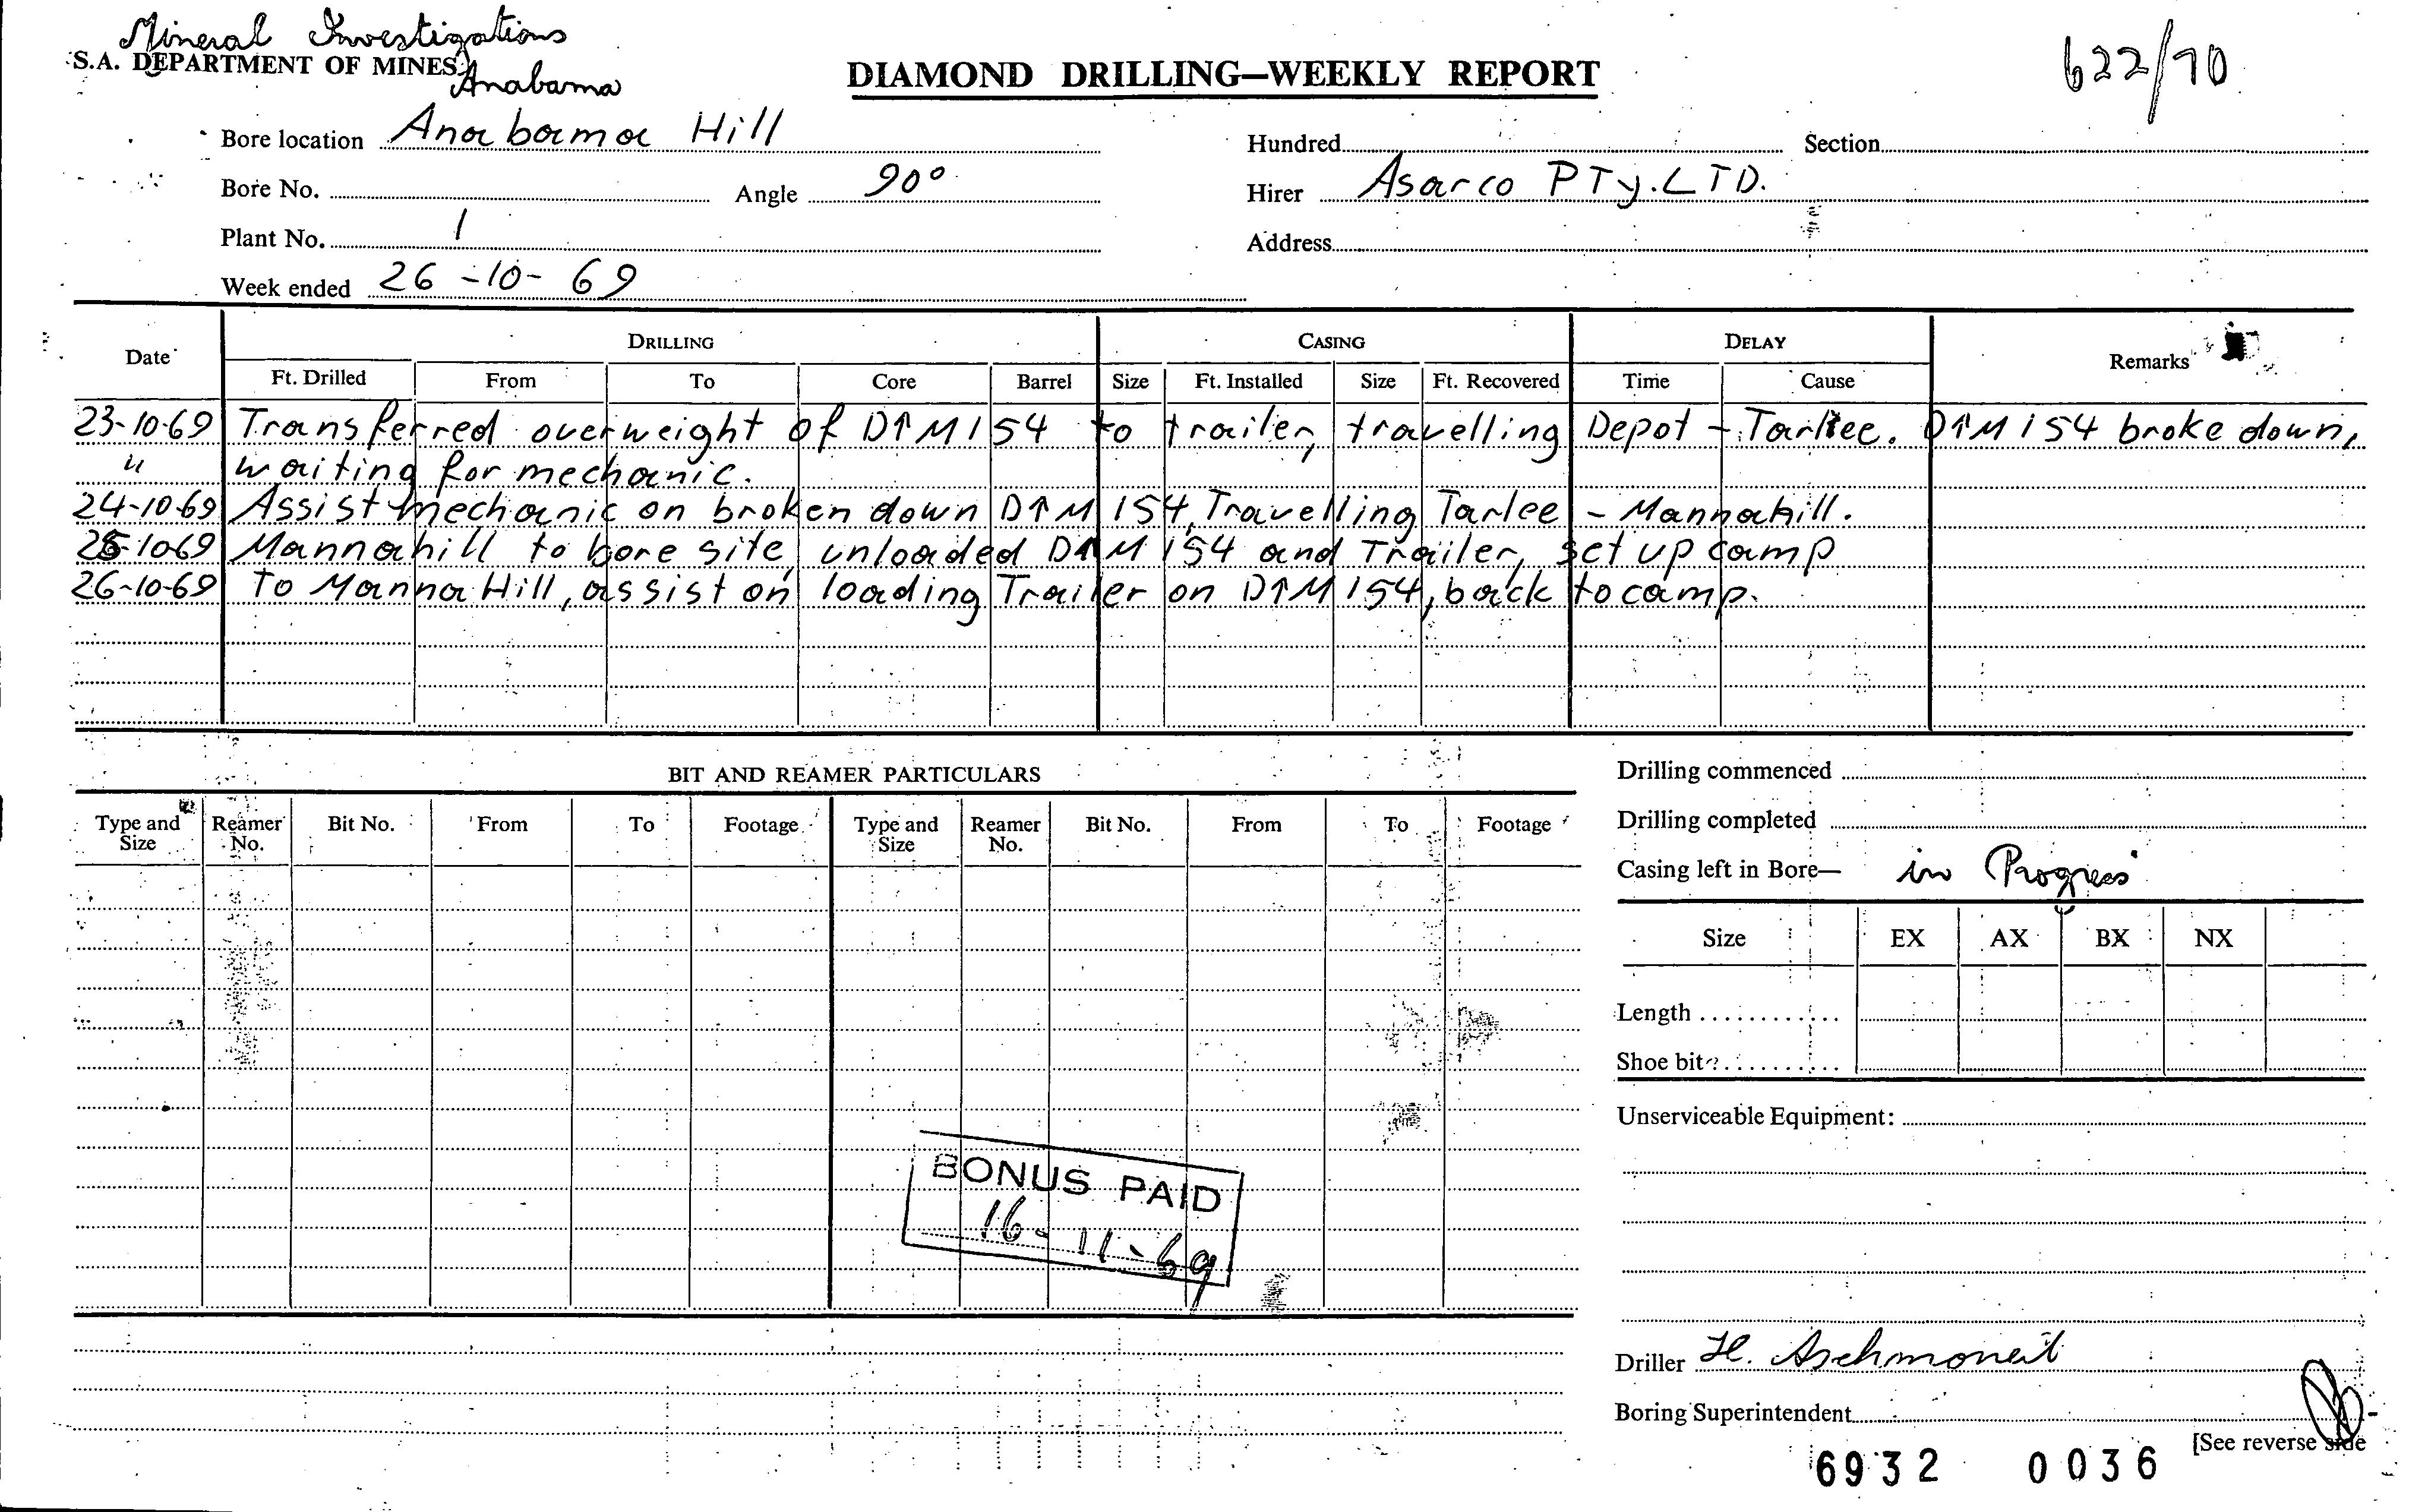 Mineral Investigations
S.A. DEPARTMENT OF MINES
Anabama
DIAMOND DRILLING—WEEKLY REPORT
622/70
Bore location Anabama Hill
Hundred Section
Bore No. Angle 90°
Hirer Asarco PTy. LTD.
Plant No. 1
Address
Week ended 26-10-69
Date DRILLING CASING DELAY Remarks
Ft. Drilled From To Core Barrel Size Ft. Installed Size Ft. Recovered Time Cause
23-10-69 Transferred overweight of D↑M 154 to trailer, travelling Depot - Tarlee. D↑M 154 broke down,
" waiting for mechanic.
24-10-69 Assist mechanic on broken down D↑M 154, Travelling Tarlee - Mannahill.
25-10-69 Mannahill to bore site, unloaded D↑M 154 and Trailer, set up camp
26-10-69 To Manna Hill, assist on loading Trailer on D↑M 154, back to camp.
BIT AND REAMER PARTICULARS
Type and Size Reamer No. Bit No. From To Footage Type and Size Reamer No. Bit No. From To Footage
Drilling commenced
Drilling completed
Casing left in Bore— in Progress
Size EX AX BX NX
Length
Shoe bit
Unserviceable Equipment:
BONUS PAID
16-11-69
Driller H. Aschmoneit
Boring Superintendent
[See reverse side
6932 0036